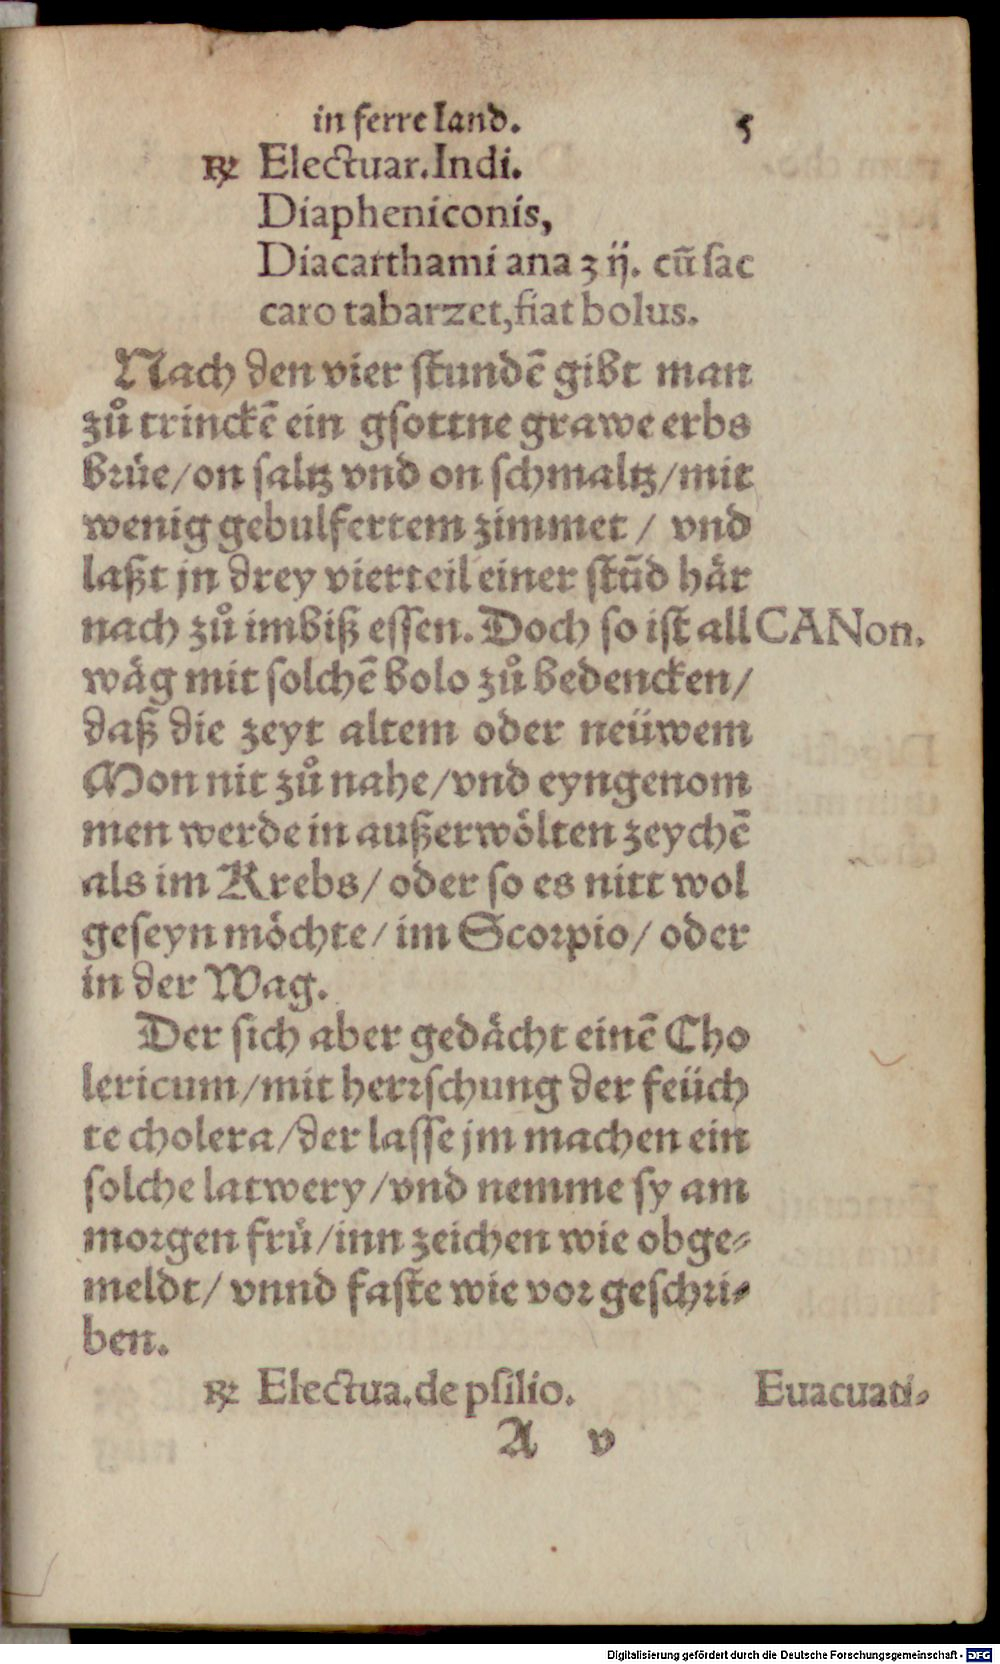 in ferre land. 5
℞ Electuar. Indi.
Diapheniconis,
Diacarthami ana ʒ ij. cū sac
caro tabarzet, fiat bolus.
Nach den vier stundē gibt man
zů trinckē ein gsottne grawe erbs
brüe/on saltz vnd on schmaltz/mit
wenig gebulfertem zimmet / vnd
laßt jn drey vierteil einer stūd här
nach zů imbiß essen. Doch so ist all CANon.
wäg mit solchē bolo zů bedencken/
daß die zeyt altem oder neüwem
Mon nit zů nahe/vnd eyngenom
men werde in außerwölten zeychē
als im Krebs/ oder so es nitt wol
geseyn möchte/ im Scorpio/ oder
in der Wag.
Der sich aber gedächt einē Cho
lericum/mit herrschung der feüch
te cholera/der lasse jm machen ein
solche latwery/vnd nemme sy am
morgen frů/inn zeichen wie obge⸗
meldt/ vnnd faste wie vor geschri⸗
ben.
℞ Electua. de psilio. Euacuati⸗
A v
Digitalisierung gefördert durch die Deutsche Forschungsgemeinschaft - DFG